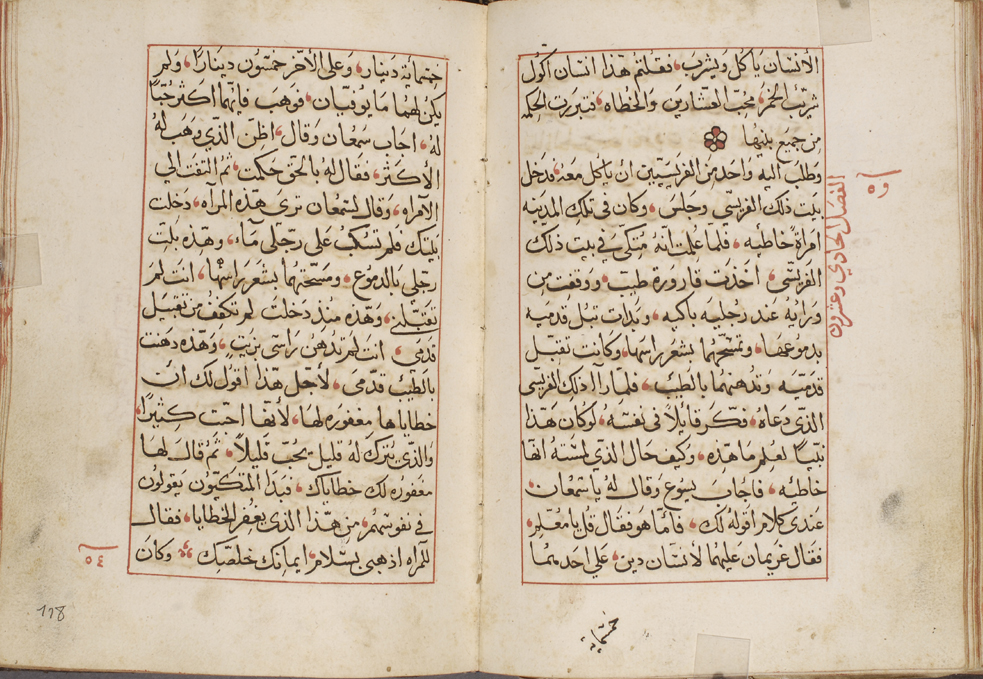 الانسان ياكل ويشرب، فقلتم هذا انسان اكول
شريب الخمر، محب العشارين والخطاه، فتبررت الحكمه
من جميع بنيها
وطلب اليه واحد من الفريسيين ان ياكل معه، فدخل
بيت ذلك الفريسي وجلس، وكان في تلك المدينه
امراة خاطيه، فلما علمت انه متكي في بيت ذلك
الفريسي، اخذت قارورة طيب، ووقفت من
ورايه عند رجليه باكيه، وبدات تبل قدميه
بدموعها، وتمسحهما بشعر راسها، وكانت تقبل
قدميه وتدهنهما بالطيب، فلما راا ذلك الفريسي
الذي دعاه، فكر قايلا في نفسه، لو كان هذا
نبيا لعلم ما هذه، وكيف حال الذي لمسته انها
خاطيه، فاجاب يسوع وقال له يا سمعان،
عندي كلام اقوله لك، فاما هو فقال قل يا معلم،
فقال غريمان عليهما لانسان دين، علي احدهما
الفصل الحادي وعشرون
خمسمايه
خمسمايه دينار، وعلى الاخر خمسون دينارا، ولم
يكن لهما ما يوفيان، فوهب فايهما اكثر حبا
له، اجاب سمعان وقال، اظن الذي وهب له
الاكثر، فقال له بالحق حكمت، ثم التفت الي
الامراه، وقال لسمعان ترى هذه المراه، دخلت
بيتك فلم تسكب على رجلي ماء، وهذه بلت
رجلي بالدموع، ومسحتهما بشعر راسها، انت لم
تقبلني، وهذه منذ دخلت لم تكفف من تقبيل
قدمي، انت لم تدهن راسي بزيت، وهذه دهنت
بالطيب قدمي، لاجل هذا اقول لك ان
خطاياها مغفوره لها، لانها احبت كثيرا،
والذي يترك له قليل يحب قليلا، ثم قال لها
مغفوره لك خطاياك، فبدا المتكيون يقولون
في نفوسهم، من هذا الذي يغفر الخطايا، فقال
للمراه اذهبي بسلام، ايمانك خلصك، وكان
٥٤
118